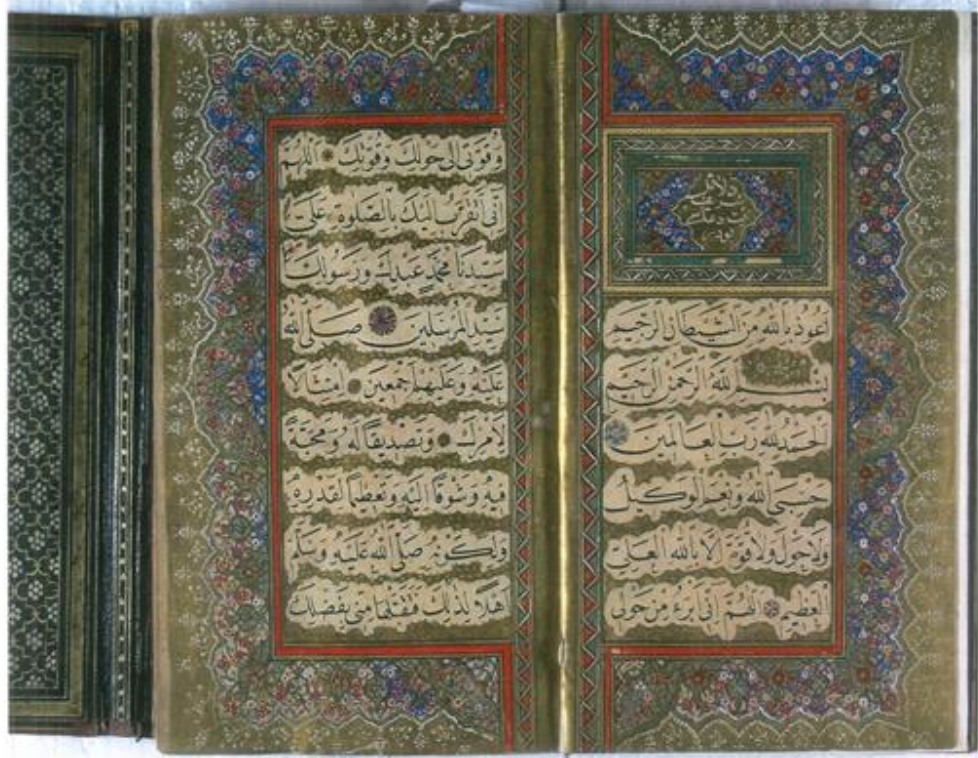 اَعُوذُ بِاللّٰهِ مِنَ الشَّيْطَانِ الرَّجِيمِ
بِسْمِ اللّٰهِ الرَّحْمٰنِ الرَّحِيمِ
اَلْحَمْدُ لِلّٰهِ رَبِّ الْعَالَمِينَ
حَسْبِيَ اللّٰهُ وَنِعْمَ الْوَكِيلُ
وَلَاحَوْلَ وَلَاقُوَّةَ اِلَّا بِاللّٰهِ الْعَلِىِّ
الْعَظِيمِ اَللّٰهُمَّ اِنِّى اَبْرَءُ مِنْ حَوْلِى
وَقُوَّتِى اِلٰى حَوْلِكَ وَقُوَّتِكَ اَللّٰهُمَّ
اِنِّى اَتَقَرَّبُ اِلَيْكَ بِالصَّلٰوةِ عَلٰى
سَيِّدِنَا مُحَمَّدٍ عَبْدِكَ وَرَسُولِكَ
سَيِّدِ الْمُرْسَلِينَ صَلَّى اللّٰهُ
عَلَيْهِ وَعَلَيْهِمْ اَجْمَعِينَ اِمْتِثَالًا
لِاَمْرِكَ وَتَصْدِيقًا لَهُ وَمَحَبَّةً
فِيهِ وَشَوْقًا اِلَيْهِ وَتَعْظِيمًا لِقَدْرِهِ
وَلِكَوْنِهِ صَلَّى اللّٰهُ عَلَيْهِ وَسَلَّمَ
اَهْلًا لِذٰلِكَ فَتَقَبَّلْهَا مِنِّى بِفَضْلِكَ